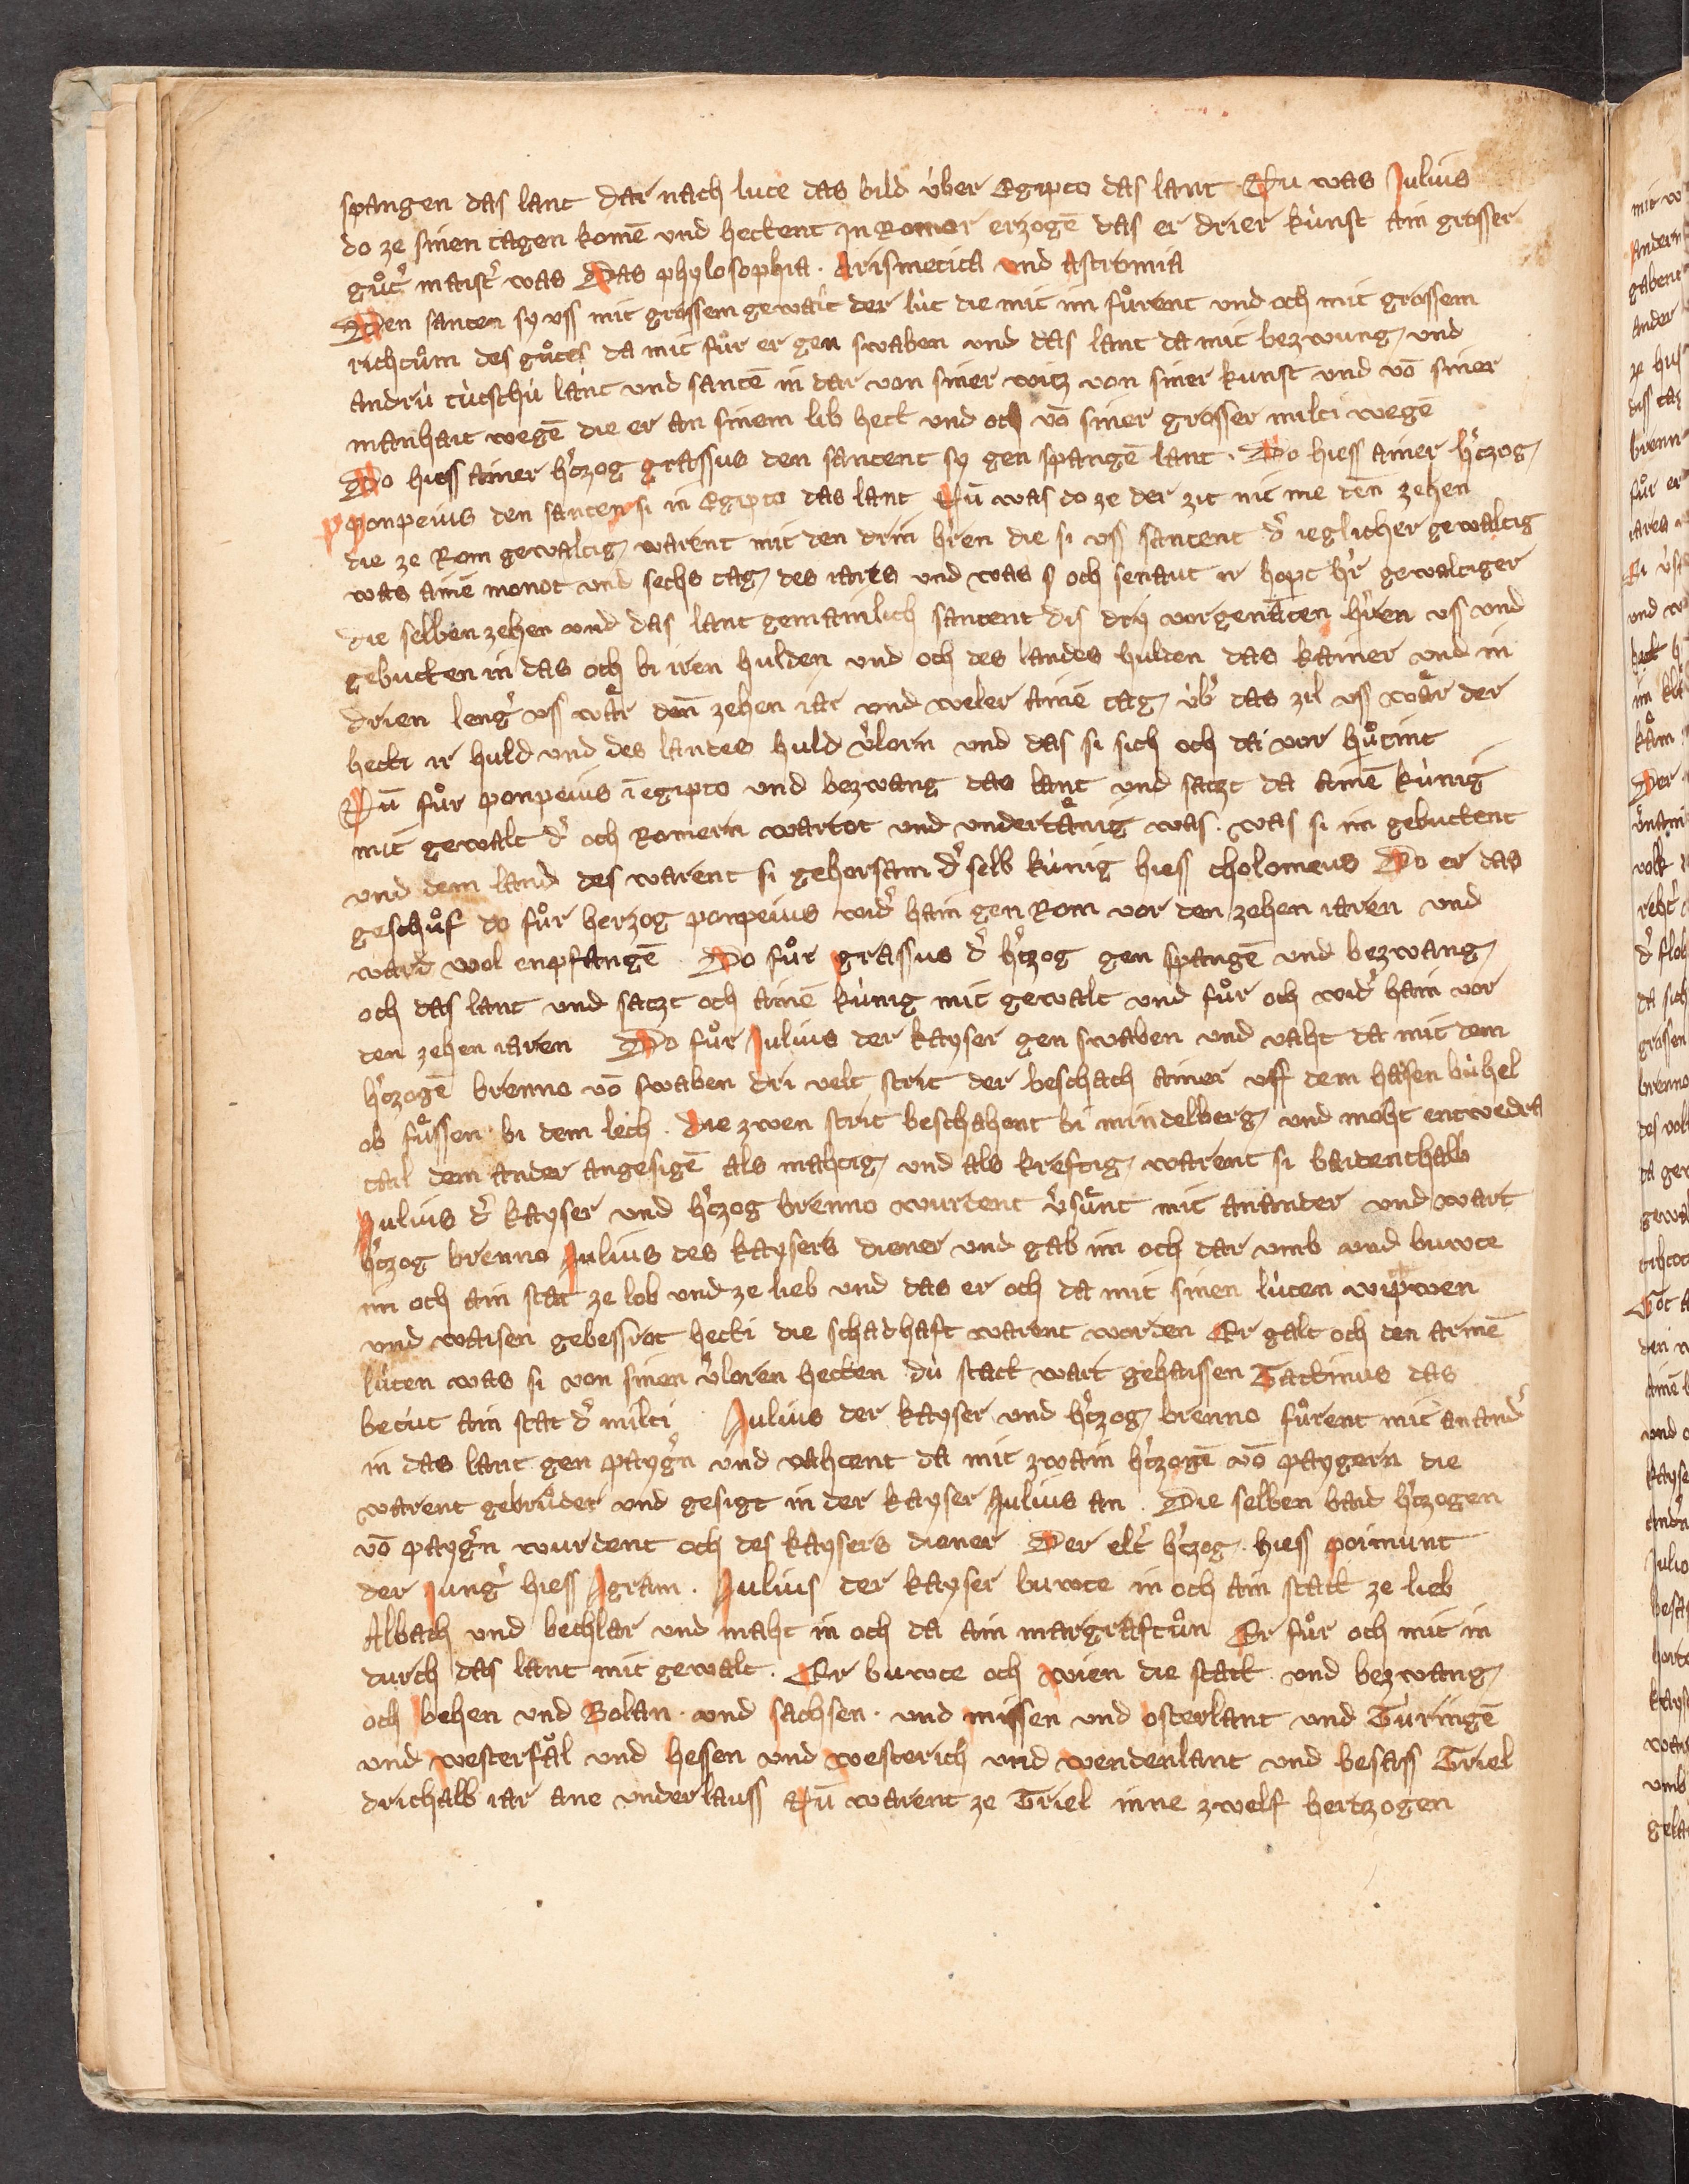 spangen das lant Dar nach lute das bild über Egipto das lant Nu was Julius
do ze sinen tagen komē und hettent in Romer erzogē das er drier kùnst ain grosser
gůt' maist' was Das phylosophia · Arismetica und astromia
Den santen sy uss mit grossem gewalt der lùt die mit im fůrent und och mit grossem
richtům des gůtes da mit fůr er gen swaben und das lant da mit bezwung und
andrù tùtschù lant und santē in dar von siner witz von siner kunst und vō siner
manhait wegē die er an sinem lib hett und och vō siner grosser milti wegē
Do hiess ainer h'tzog grassus den santent sy gen spangē lant · Do hiess ainer h'tzog
ponpeius den santen si in Egipto das lant Nū was do ze der zit nit me denn zehen
die ze Rom gewaltig warent mit den drin h'ren die si uss santent d' ieglicher gewaltig
was ainē monot und sechs tag des iares und was och senaut ir hopt h'r gewaltiger
die selben zehen und das lant gemainlich santent dis dry vorgenāten h'ren uss und
gebutten in das och bi iren hulden und och des landes hulden das kainer und in
drien leng' uss wår denn zehen iar und weler ainē tag ùb' das zil uss wår der
hetti ir huld und des landes huld v'lorn und das si sich och da vor hůtint
Nū fůr ponpeius ī egipto und bezwang das lant und satzt da ainē kùnig
mit gewalt d' och Romern wartot und undertånig was · was si im gebuttent
und dem land des warent si gehorsam d' selb kùnig hiess tholomeus Do er das
geschůf do fůr herzog ponpeius wid' hain gen Rom vor den zehen iaren und
ward wol enpfangē · Do fůr grassus d' h'tzog gen spangē und bezwang
och das lant und satzt och ainē kùnig mit gewalt und fůr och wid' hain vor
den zehen iaren Do fůr Julius der kayser gen swaben und vaht da mit dem
h'tzogē brenno vō swaben dri velt strit der beschach ainer uff dem hasen bùhel
ob fůssen · bi dem lech · die zwen strit beschahent bi mindelberg und moht entwedra
tail dem ander angesigē als mahtig und als kreftig warent si baidenthalb
Julius d' kayser und h'tzog brenno wurdent v'sůnt mit anander und wart
h'tzog brenno Julius des kaysers diener und gab im och dar umb und buwte
im och ain stat ze lob und ze lieb und das er och da mit sinen lùten witwen
und waisen gebessrot hetti die schadhaft warent worden Er galt och den armē
lùten was si von sinen v'loren hetten dù statt wart gehaissen Tattinus das
betùt ain stat d' milti Julius der kayser und h'tzog brenno fůrent mit anand'
in das lant gen payg'n und vahtent da mit zwain h'tzogē vō paygern die
warent gebrůder und gesigt in der kayser Julius an · Die selben baid h'tzogen
vō payg'n wurdent och des kaysers diener Der elt' h'tzog hiess poimunt
der Jung' hiess Jgram · Julius der kayser buwte in och ain statt ze lieb
Albach und bechlar und maht in och da ain margraftům Er fůr och mit in
durch das lant mit gewalt · Er buwte och wien die statt und bezwang
och behen und Bolan · und sachsen · und missen und osterlant und Turingē
und westerfål und hessen und westerich und wendenlant und besass Triel
drithalb iar ane underlauss Nū warent ze Triel inne zwelf hertzogen